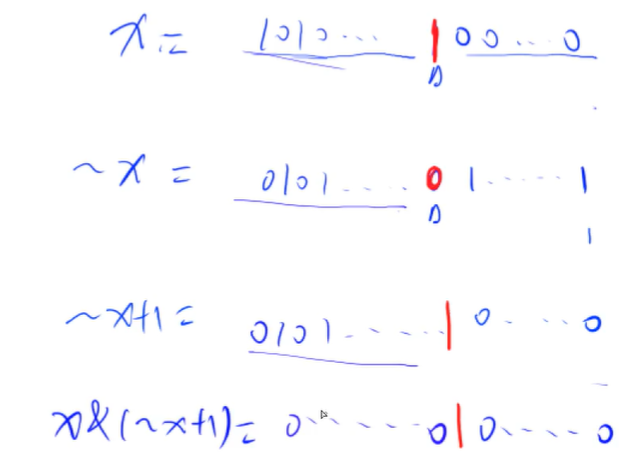 x = 1010... 1 00...0
~x = 0101..... 0 1......1
1
~x+1 = 0101..... 1 0....0
x&(~x+1)= 0.....0 1 0....0